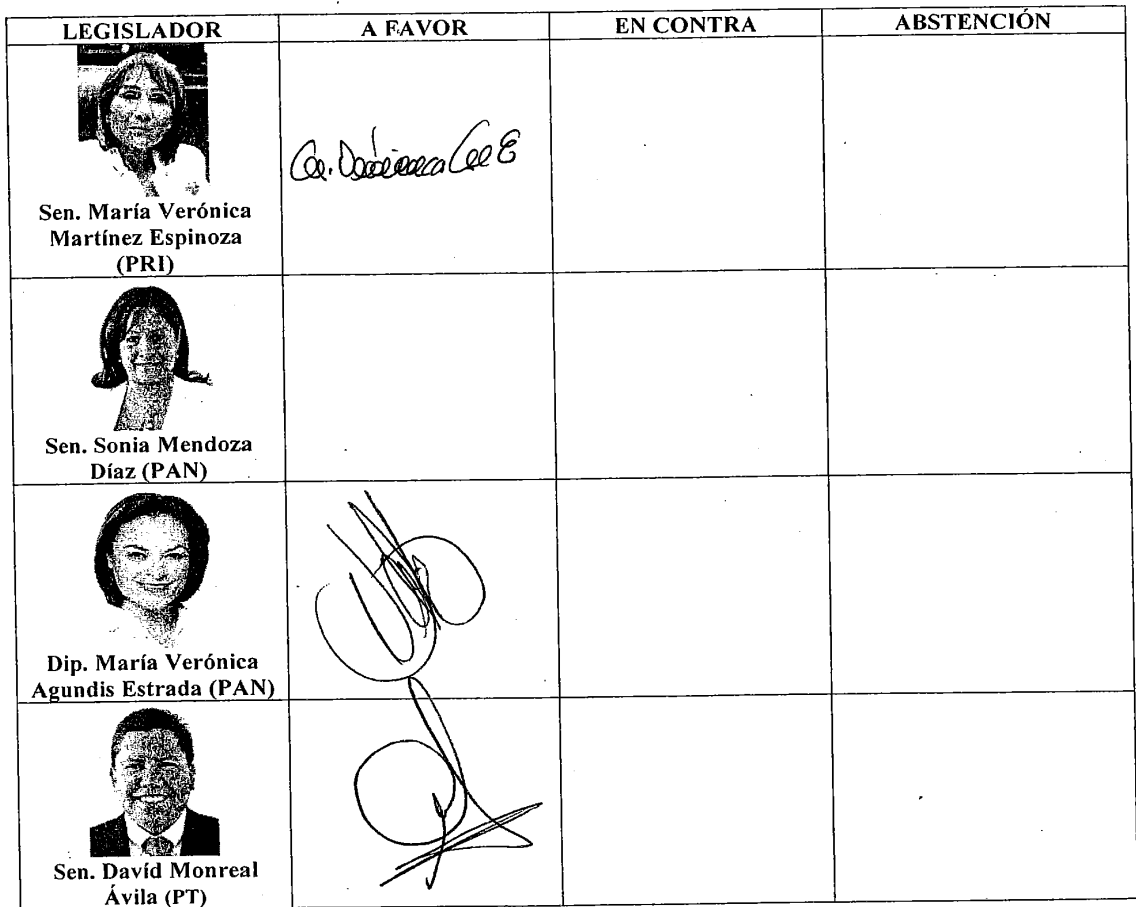 LEGISLADOR A FAVOR EN CONTRA ABSTENCIÓN
Sen. María Verónica
Martínez Espinoza
(PRI)
Sen. Sonia Mendoza
Díaz (PAN)
Dip. María Verónica
Agundis Estrada (PAN)
Sen. Davíd Monreal
Ávila (PT)